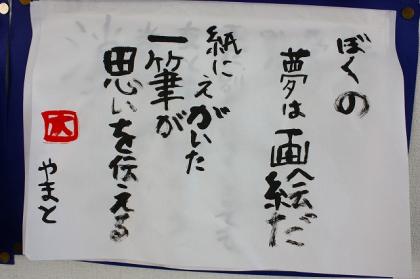 ぼくの
夢は画絵だ
紙にえがいた
一筆が
思いを伝える
やまと